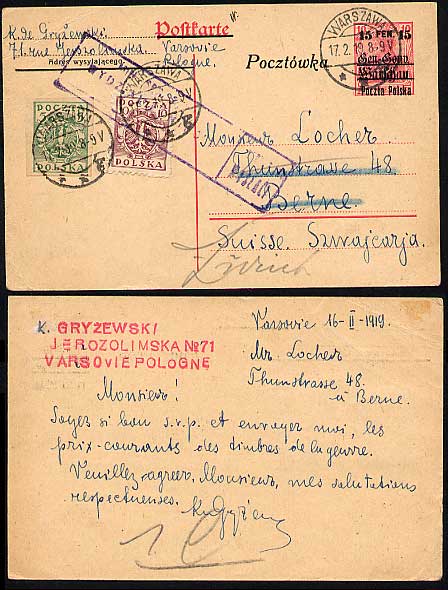 K. de Gryżewski
Postkarte
71. rue Jerozolimska
Varsovie
Pologne.
Adres wysyłającego:
Pocztówka
WARSZAWA
17. 2. 19. 8-9 V
15 PFEN. 15
Gen.-Gouv.
Warschau
Poczta Polska
POCZTA
POLSKA
POCZTA
POLSKA
Monsieur Locher
Thunstrasse 48
Berne.
Suisse. Szwajcarja.
Zürich
K. GRYŻEWSKI
JEROZOLIMSKA № 71
VARSOVIE POLOGNE
Varsovie 16-II-1919.
Mr. Locher
Thunstrasse 48.
à Berne.
Monsieur!
Soyez si bon s.v.p. et envoyer moi, les
prix-courants des timbres de la guerre.
Veuillez agréer, Monsieur, mes salutations
respectueuses.